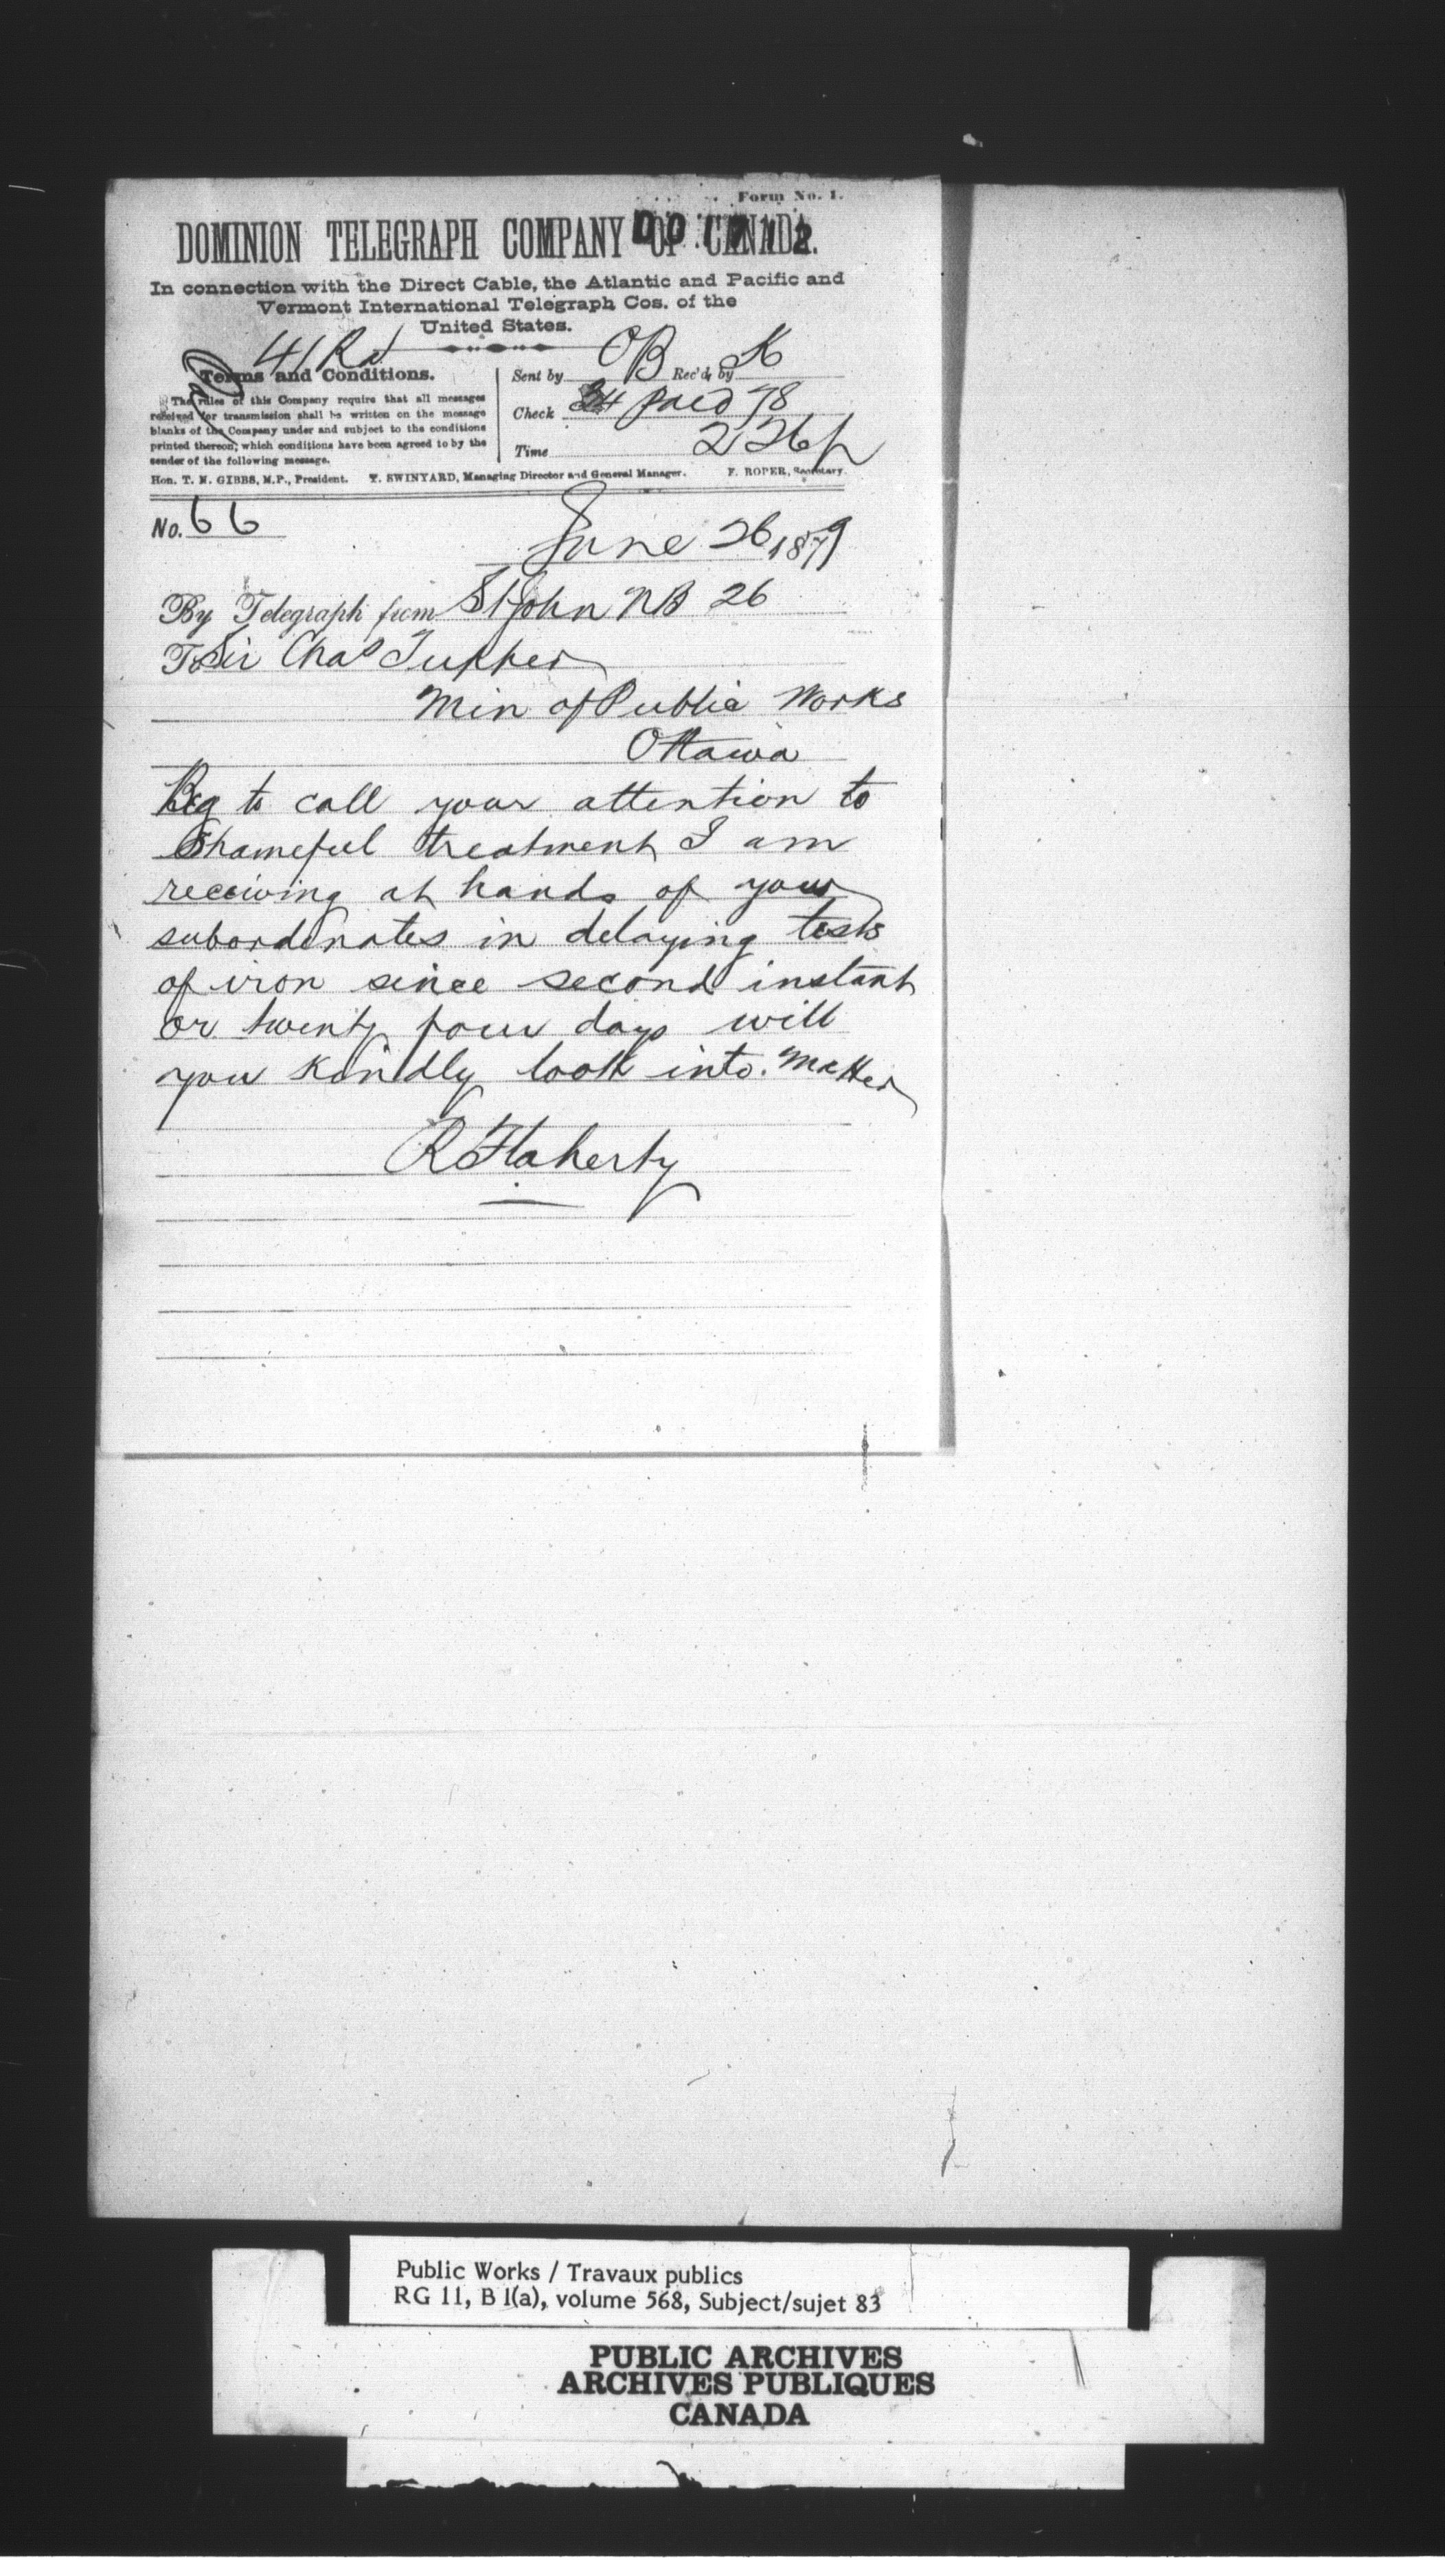 Form No. 1.
DOMINION TELEGRAPH COMPANY OF CANADA.
In connection with the Direct Cable, the Atlantic and Pacific and
Vermont International Telegraph Cos. of the
United States.
41 Rd
Terms and Conditions.
The rules of this Company require that all messages
received for transmission shall be written on the message
blanks of the Company under and subject to the conditions
printed thereon, which conditions have been agreed to by the
sender of the following message.
Sent by OB Rec'd, by K
Check 34 paid 78
Time 2 26 p
Hon. T. N. GIBBS, M.P., President. T. SWINYARD, Managing Director and General Manager. F. ROPER, Secretary.
No. 66
June 26 1879
By Telegraph from St John NB 26
To Sir Chas Tupper
Min of Public Works
Ottawa
Beg to call your attention to
Shameful treatment I am
receiving at hands of your
subordinates in delaying tests
of iron since second instant
or twenty four days will
you kindly look into. Matter
R Flaherty
Public Works / Travaux publics
RG 11, B 1(a), volume 568, Subject/sujet 83
PUBLIC ARCHIVES
ARCHIVES PUBLIQUES
CANADA